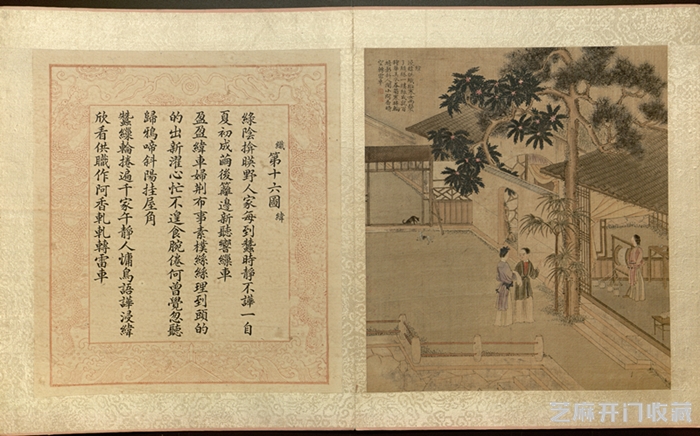 織 第十六圖 緯
綠陰揜暎野人家每到蠶時靜不譁一自
夏初成繭後籬邊新聽響繅車
盈盈緯車婦荆布事素樸絲絲理到頭的
的出新濯心忙不遑食腕倦何曾覺忽聽
歸鴉啼斜陽挂屋角
蠶繅輪捲遍千家午靜人慵鳥語譁浸緯
欣看供職作阿香軋軋轉雷車
芝麻开门收藏